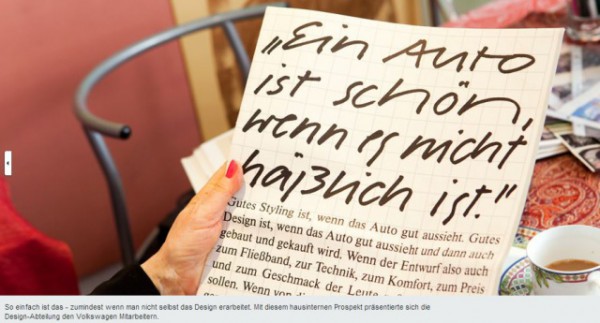 „Ein Auto
ist schön,
wenn es nicht
häßlich ist."
Gutes Styling ist, wenn das Auto gut aussieht. Gutes
Design ist, wenn das Auto gut aussieht und dann auch
gebaut und gekauft wird. Wenn der Entwurf also auch
zum Fließband, zur Technik, zum Komfort, zum Preis
und zum Geschmack der Leute
sollen. Wenn
So einfach ist das - zumindest wenn man nicht selbst das Design erarbeitet. Mit diesem hausinternen Prospekt präsentierte sich die
Design-Abteilung den Volkswagen Mitarbeitern.